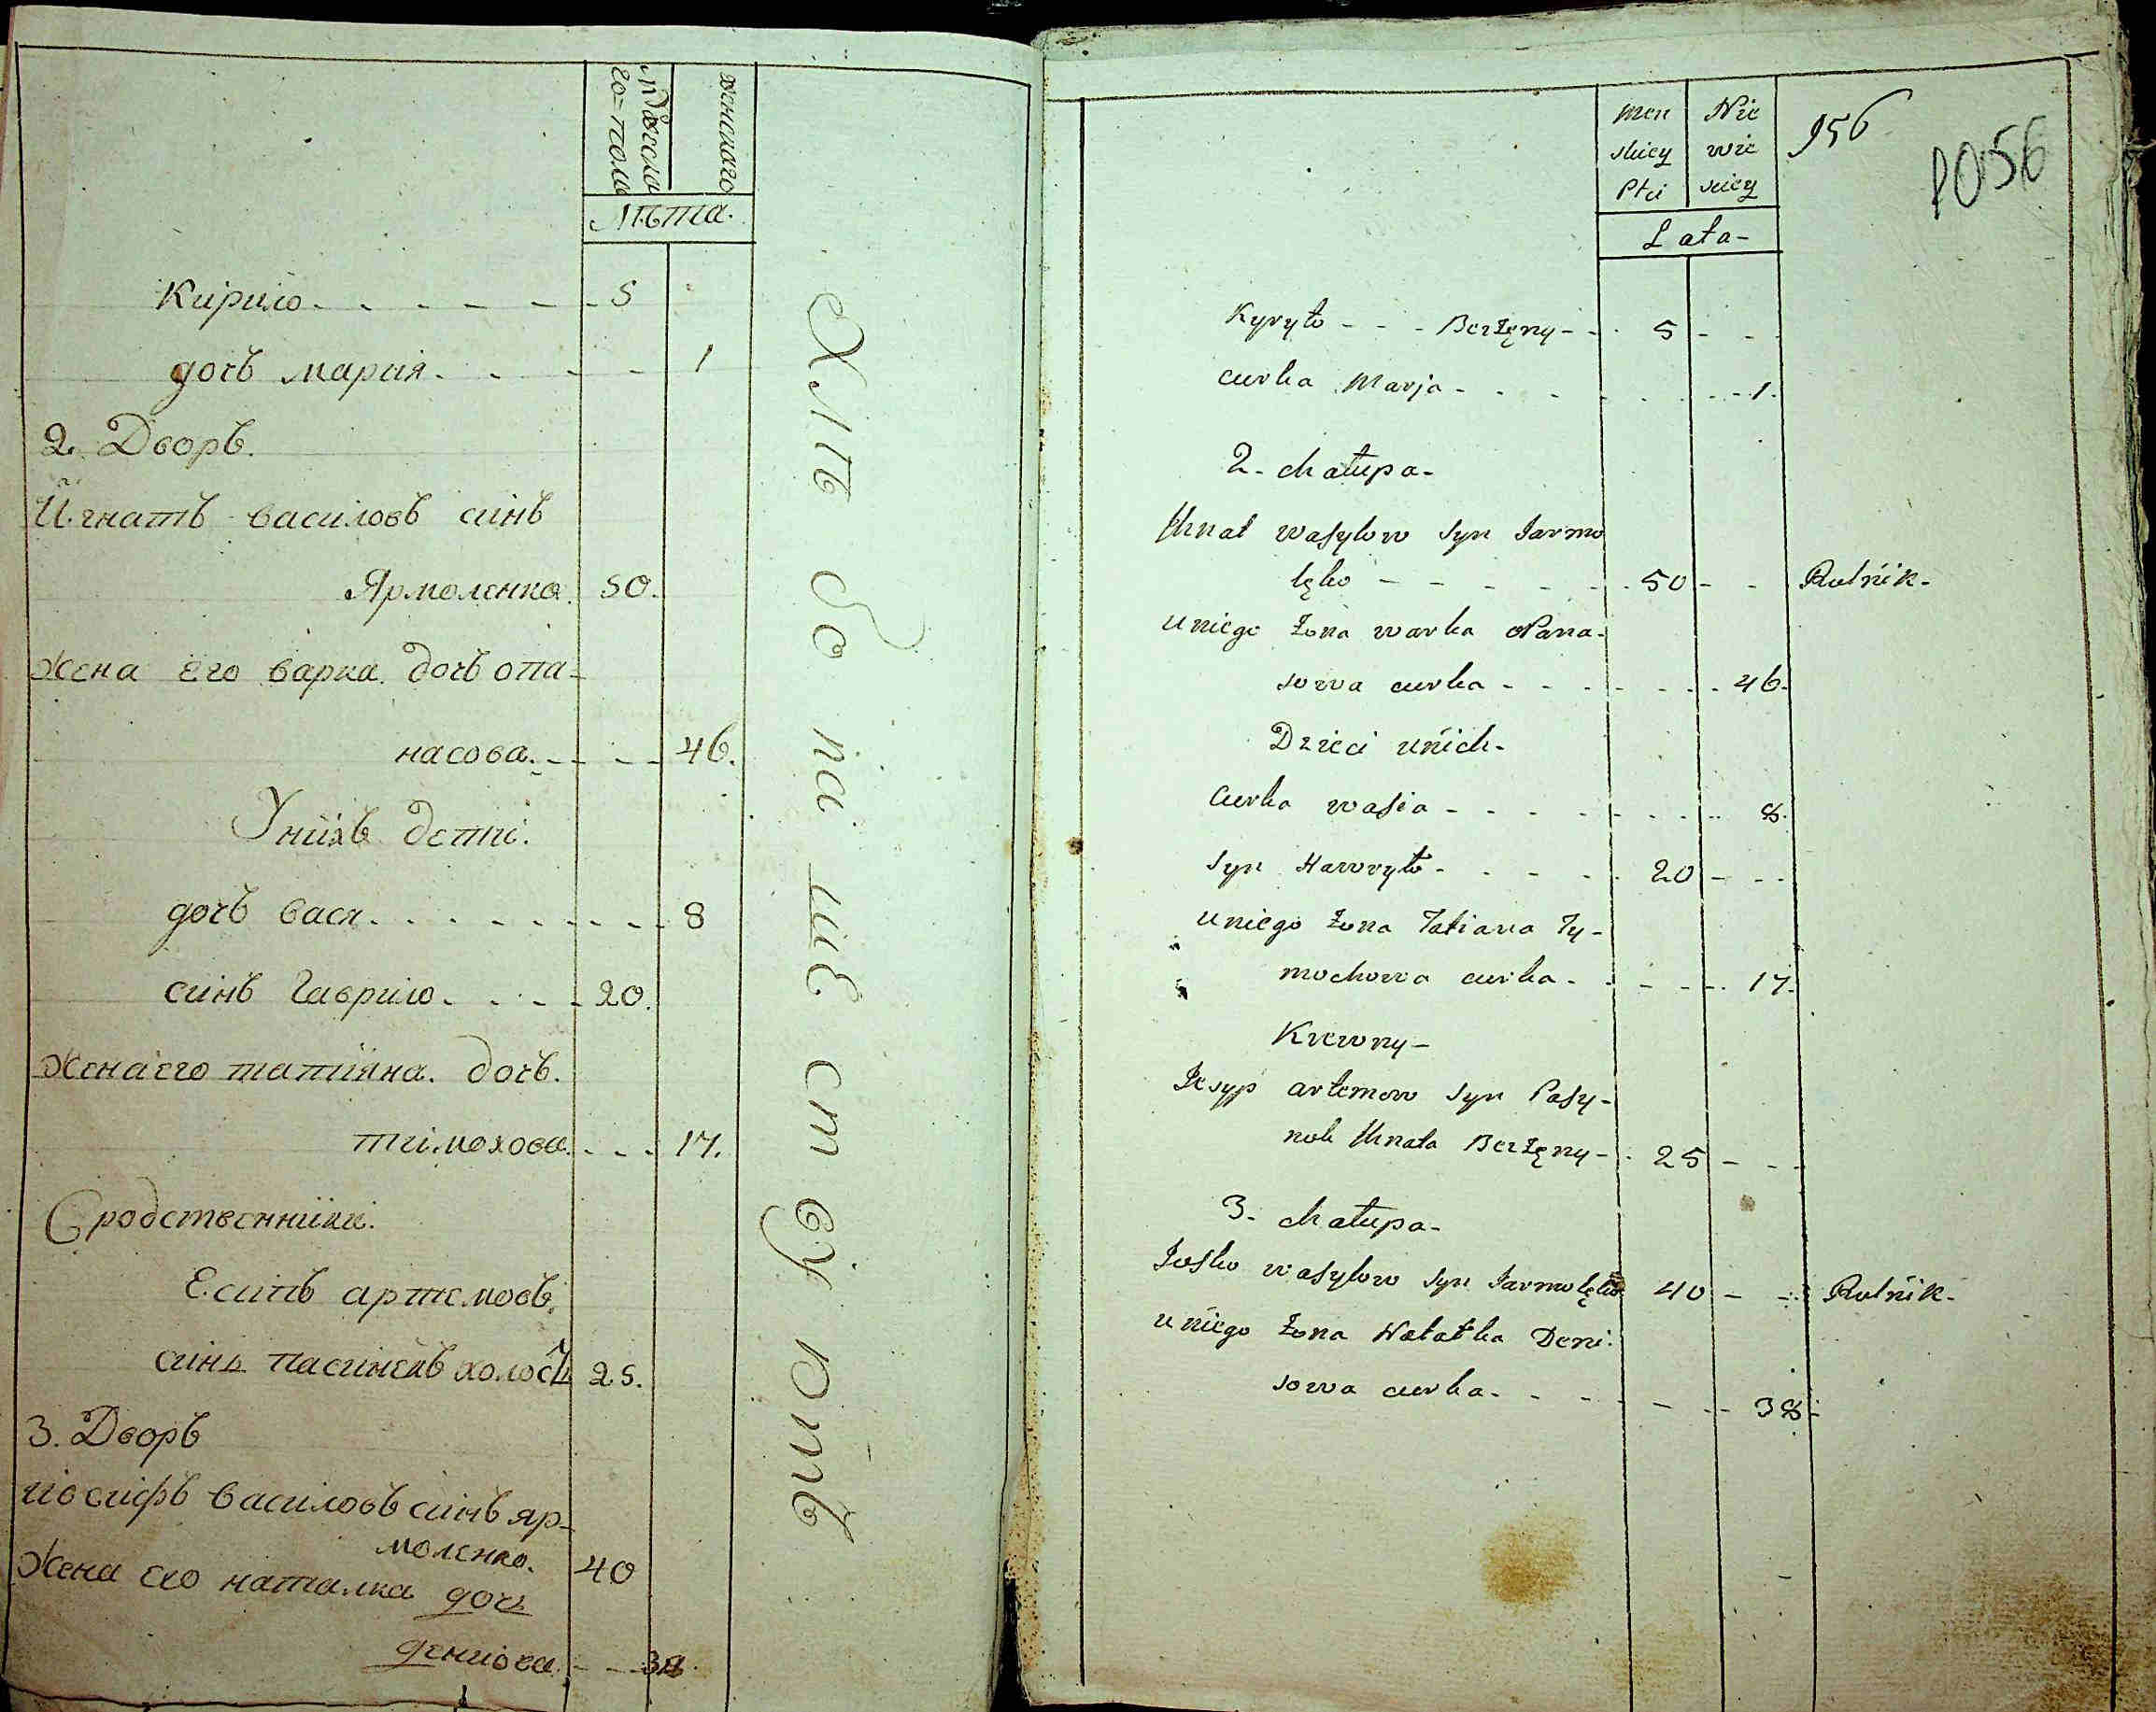 мужеска
го=пола
женского
Лѣта.
Кирило - - - - - - 5
дочь мария - - - - 1
2. Дворъ.
Игнатъ василовъ синъ
Ярмоленко. 50.
жена его варка. дочь опа-
насова. - - - 46.
Унихъ дети.
дочь вася - - - - - - - 8
синъ гаврило - - - - 20.
жена его татияна. дочь.
тимохова - - - 17.
Сродственники.
Есипъ артемовъ
синъ пасинокъ холостъ 25.
3. Дворъ
иосифъ василовъ синъ яр-
моленко. 40
жена его наталка дочь
денисова. - - - 38
Хлѣбопашествуютъ
Men
skiey
Płci
Nie
wie
sciey
Lata -
956
1056
Kyryło - - - Bezżęny - - 5 - - -
curka Marja - - - - - - 1.
2. chałupa -
Ihnat wasylow syn Iarmo
lęko - - - - - - 50 - - Rolnik -
u niego żona warka oPana-
sowa curka - - - - - - 46.
Dzieci u nich -
Curka wasia - - - - - - 8.
Syn Hawryło - - - - - 20 - - -
u niego żona Tatiana Ty-
mochowa curka - - - - - 17.
Krewny -
Iesyp artemow syn Pasy-
nok Ihnata Bezżęny - - 25 - - -
3. chałupa -
Josko wasylow syn Iarmolęko 40 - - Rolnik -
u niego żona Natałka Deni-
sowa curka - - - - - 38 -